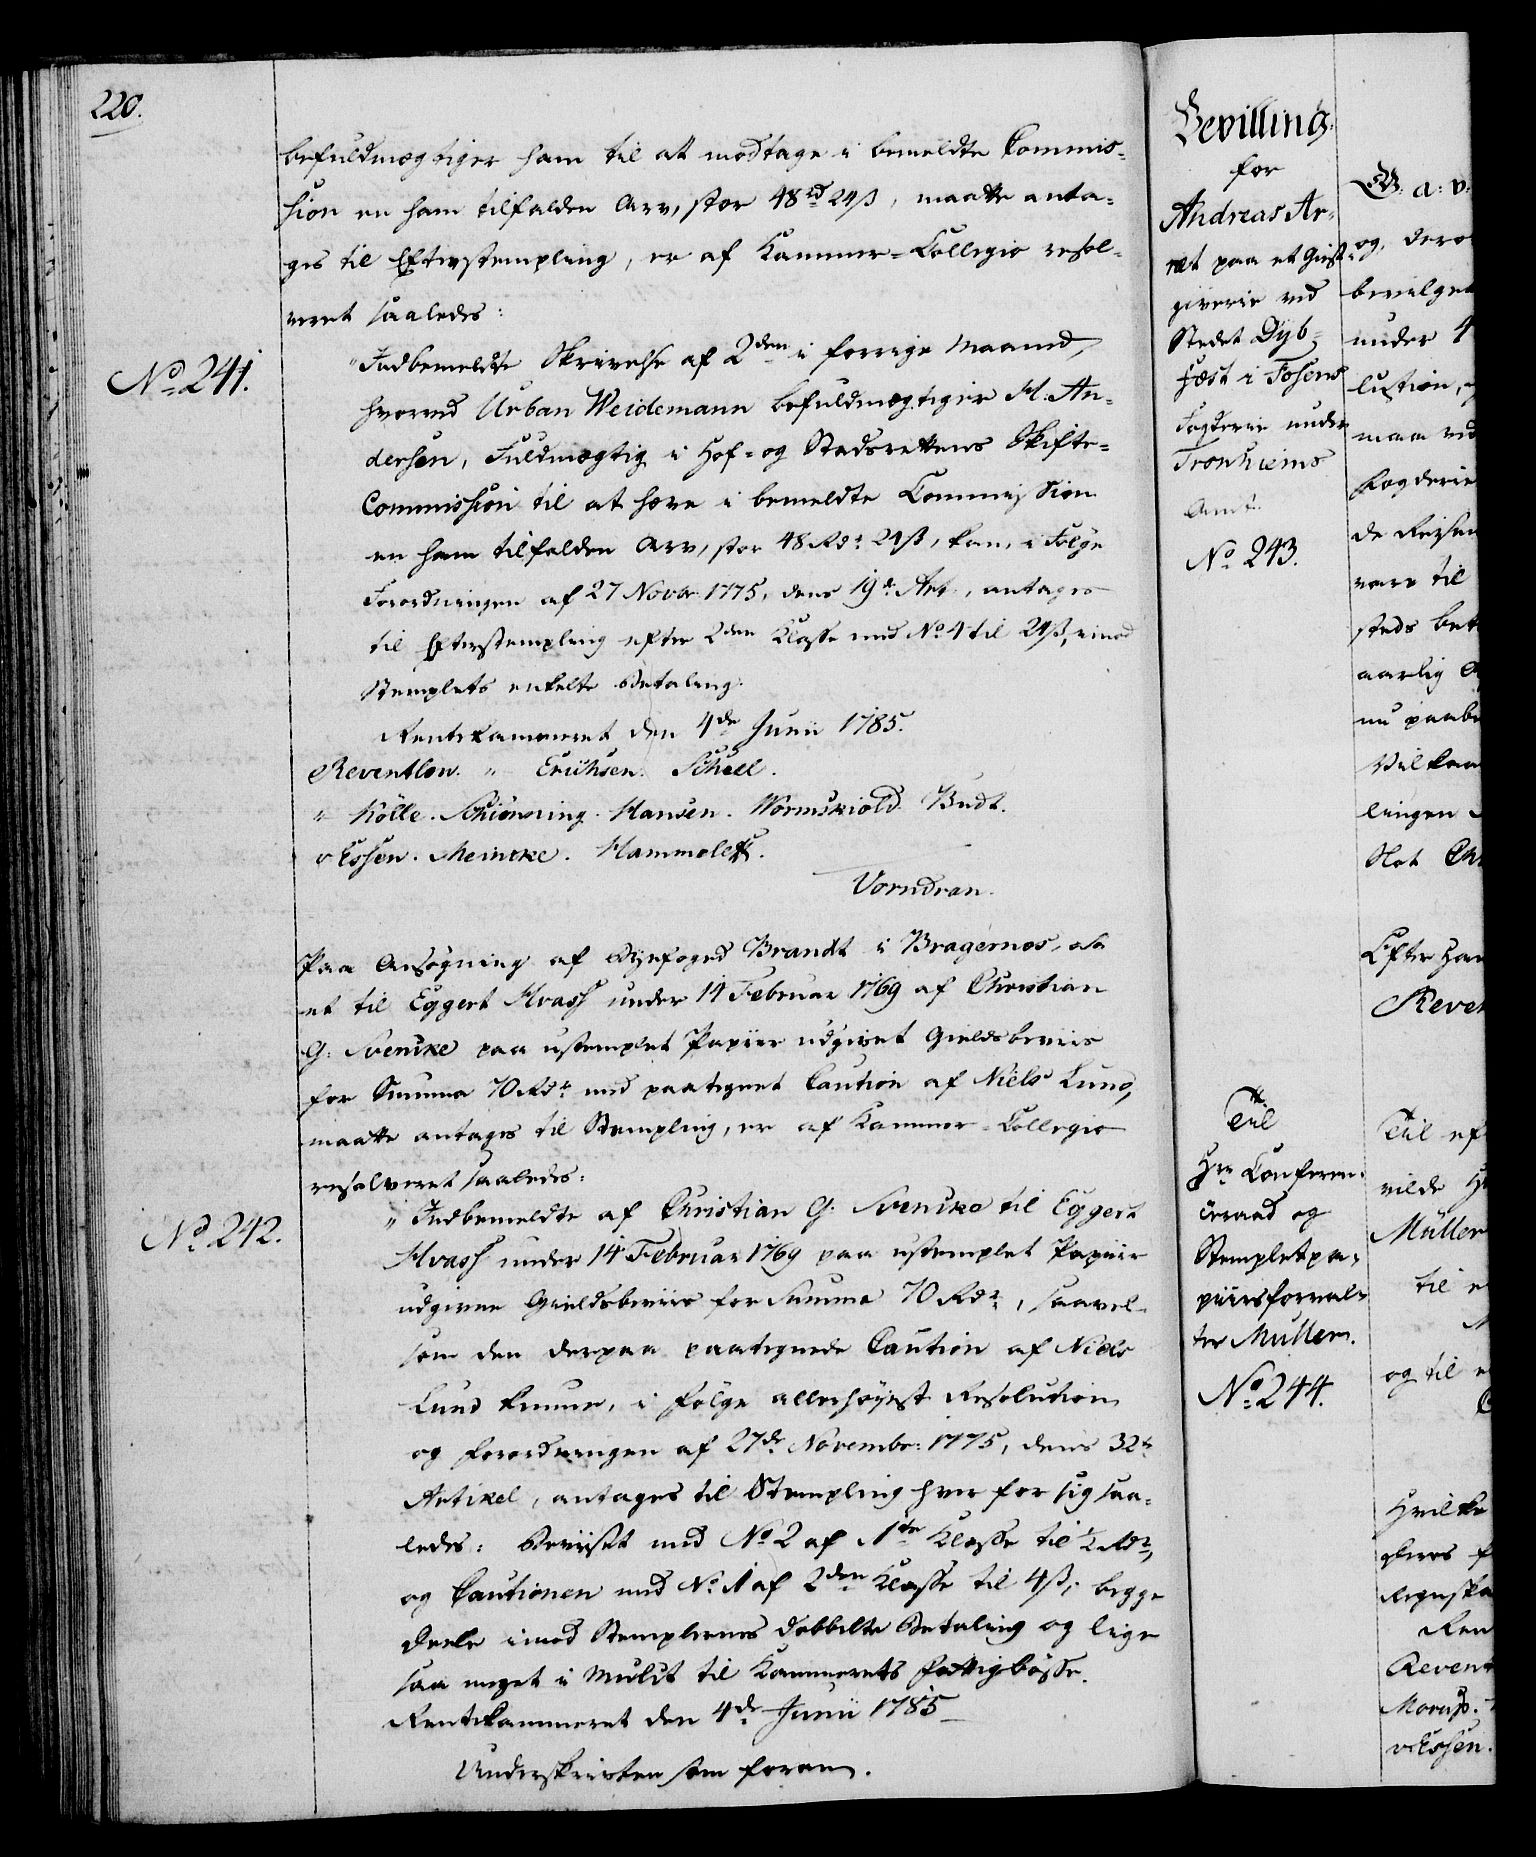 220.
befuldmægtiger ham til at modtage i bemeldte Commis-
sion en ham tilfalden Arv, stor 48 rd 24 ß, maatte anta-
ges til Efterstempling, er af Kammer-Collegio resol-
veret saaledes:
No. 241.
"Indbemeldte Skrivelse af 2den i forrige Maaned,
hvorved Urban Weidemann befuldmægtiger H. An-
dersen, Fuldmægtig i Hof- og Stadsrettens Skifte-
Commission til at hæve i bemeldte Commission
en ham tilfalden Arv, stor 48 Rdr 24 ß, kan, i Følge
Forordningen af 27 Novbr 1775, dens 19de Art., antages
til Efterstempling efter 2den Klasse med No. 4 til 24 ß, imod
Stemplets enkelte Betaling.
Rentekammeret den 4de Junii 1785.
Reventlow. " Erichsen. Scheel.
" Kölle. Schiønning. Hansen. Wormskiold. Budt.
v Essen. Meincke. Hammeleff.
Vorndran.
Paa Ansøgning af Byefoged Brandt i Bragernes, at
et til Eggert Hvass under 14 Februar 1769 af Christian
G: Svencke paa ustemplet Papiir udgivet Gieldsbeviis
for Summa 70 Rdr med paategnet Caution af Niels Lund,
maatte antages til Stempling, er af Kammer-Collegio
resolveret saaledes:
No. 242.
"Indbemeldte af Christian G: Svencke til Eggert
Hvass under 14 Februar 1769 paa ustemplet Papiir
udgivne Gieldsbeviis for Summa 70 Rdr, saavel
som den derpaa paategnede Caution af Niels
Lund kunne, i Følge allerhøyest Resolution
og Forordningen af 27de Novembr: 1775, dens 32te
Artikel, antages til Stempling hver for sig saa-
ledes: Beviset med No. 2 af 1ste Klasse til ½ Rdr,
og Cautionen med No. 1 af 2den Klasse til 4 ß, begge
Deele imod Stemplernes dobbelte Betaling og lige
saa meget i Mulct til Kammerets Fattigbøsse.
Rentekammeret den 4de Junii 1785
Underskriften som foran.
Bevilling
for
Andreas Ar-
ret paa et Giest-
giverie ved
Stedet Dyb-
fæst i Fosens
Fogderie under
Tronhiems
Amt.
No. 243.
Til
Hr Conferen-
ceraad og
Stempletpa-
piirsforval-
ter Müller.
No. 244.
G: a: v:
og, der
bevilget
under 4
lution,
maa ved
Fogderie
de Reisen
vare til
steds bet
aarlig A
nu paabe
Vilkaa
lingen
Slot Ch
Efter Han
Reven
Til ef
vilde H
Müller
til e
og til
Hvilke
Regnska
Ren
Revent
Morup.
v Essen.